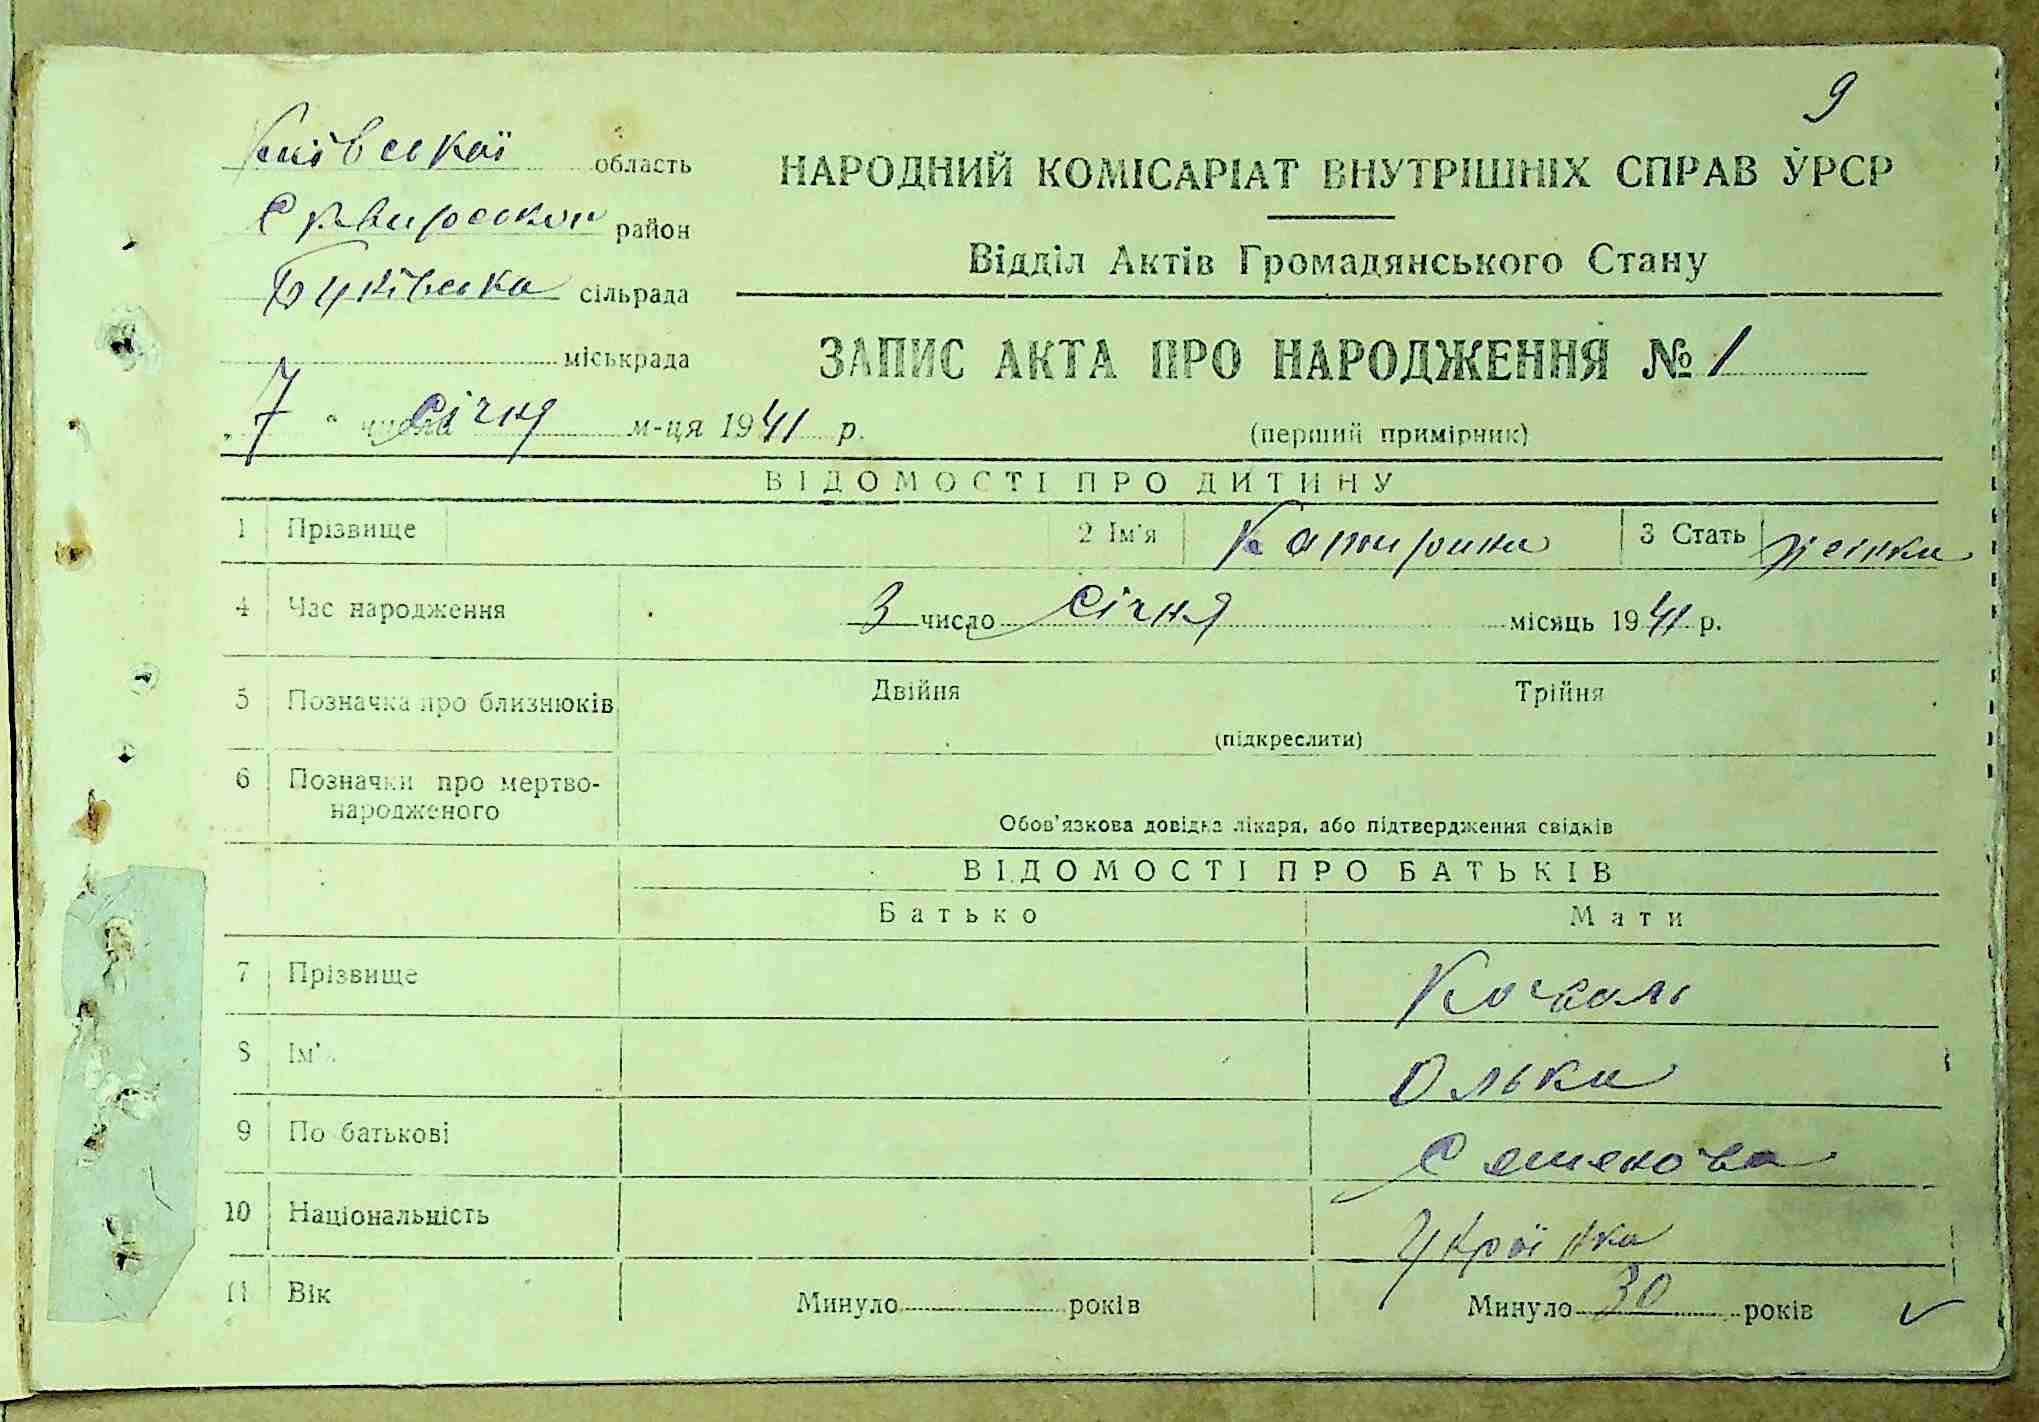 9
Київської область
НАРОДНИЙ КОМІСАРІАТ ВНУТРІШНІХ СПРАВ УРСР
Сквирської район
Відділ Актів Громадянського Стану
Буківська сільрада
міськрада
ЗАПИС АКТА ПРО НАРОДЖЕННЯ № 1
„ 7 “ числа січня м-ця 1941 р.
(перший примірник)
ВІДОМОСТІ ПРО ДИТИНУ
1 Прізвище 2 Ім'я Катирина 3 Стать жінка
4 Час народження 3 число січня місяць 1941 р.
5 Позначка про близнюків Двійня Трійня
(підкреслити)
6 Позначки про мертво-
народженого
Обов'язкова довідка лікаря, або підтвердження свідків
ВІДОМОСТІ ПРО БАТЬКІВ
Батько Мати
7 Прізвище
8 Ім'я Олька
9 По батькові Семенова
10 Національність Українка
11 Вік Минуло років Минуло 30 років